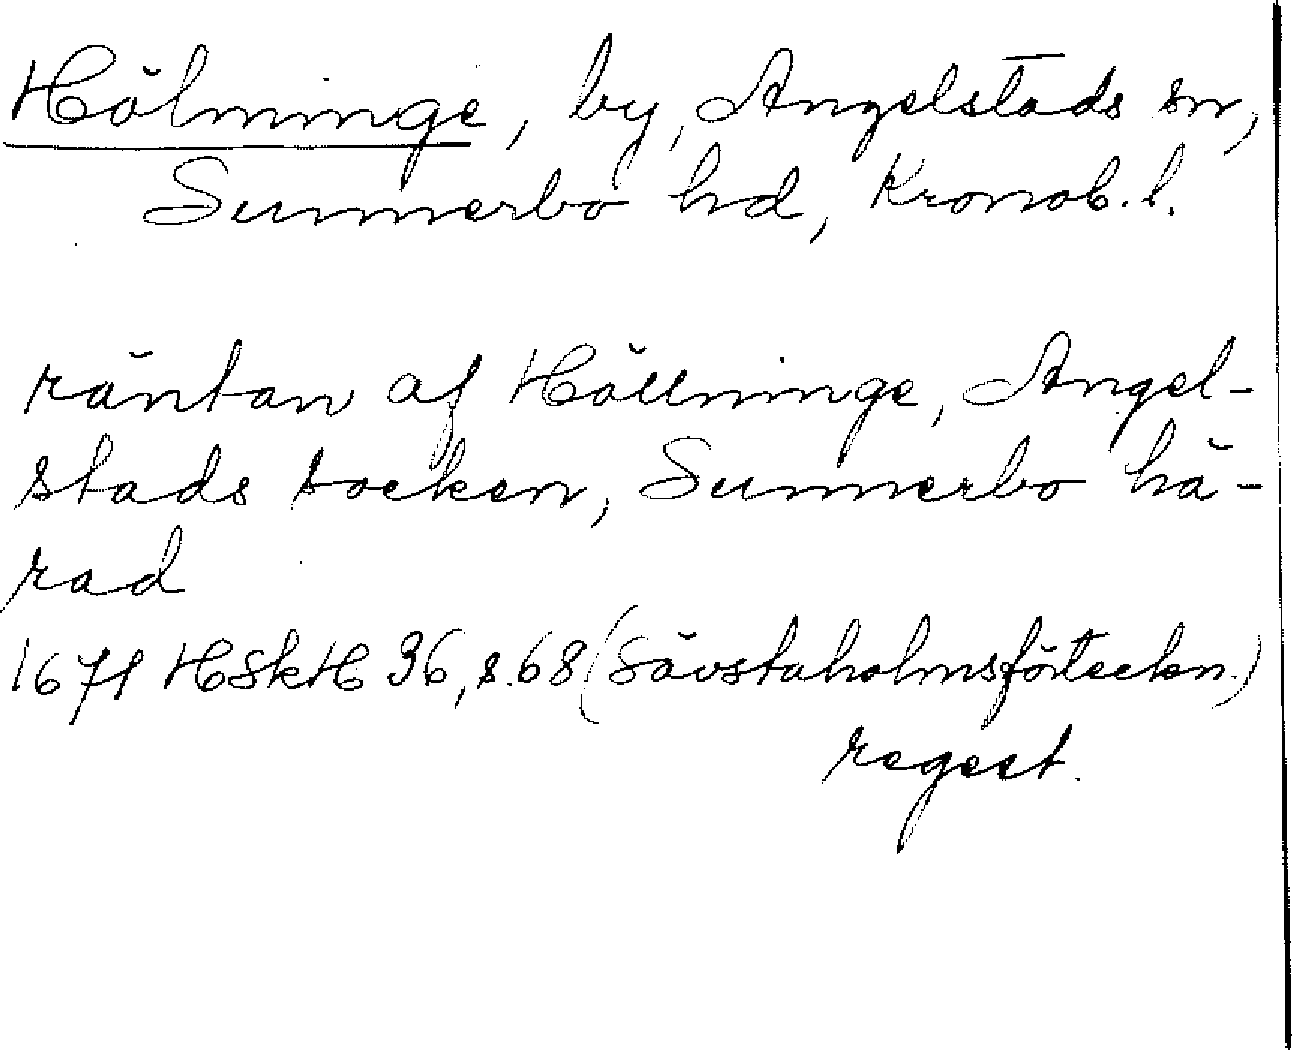 Hölminge, by, Angelstads sn,
Sunnerbo hd, Kronob. l.
räntan af Höllninge, Angel-
stads socken, Sunnerbo hä-
rad
1671 HSkH 36, s. 68 (Sävstaholmsförteckn.)
regest.